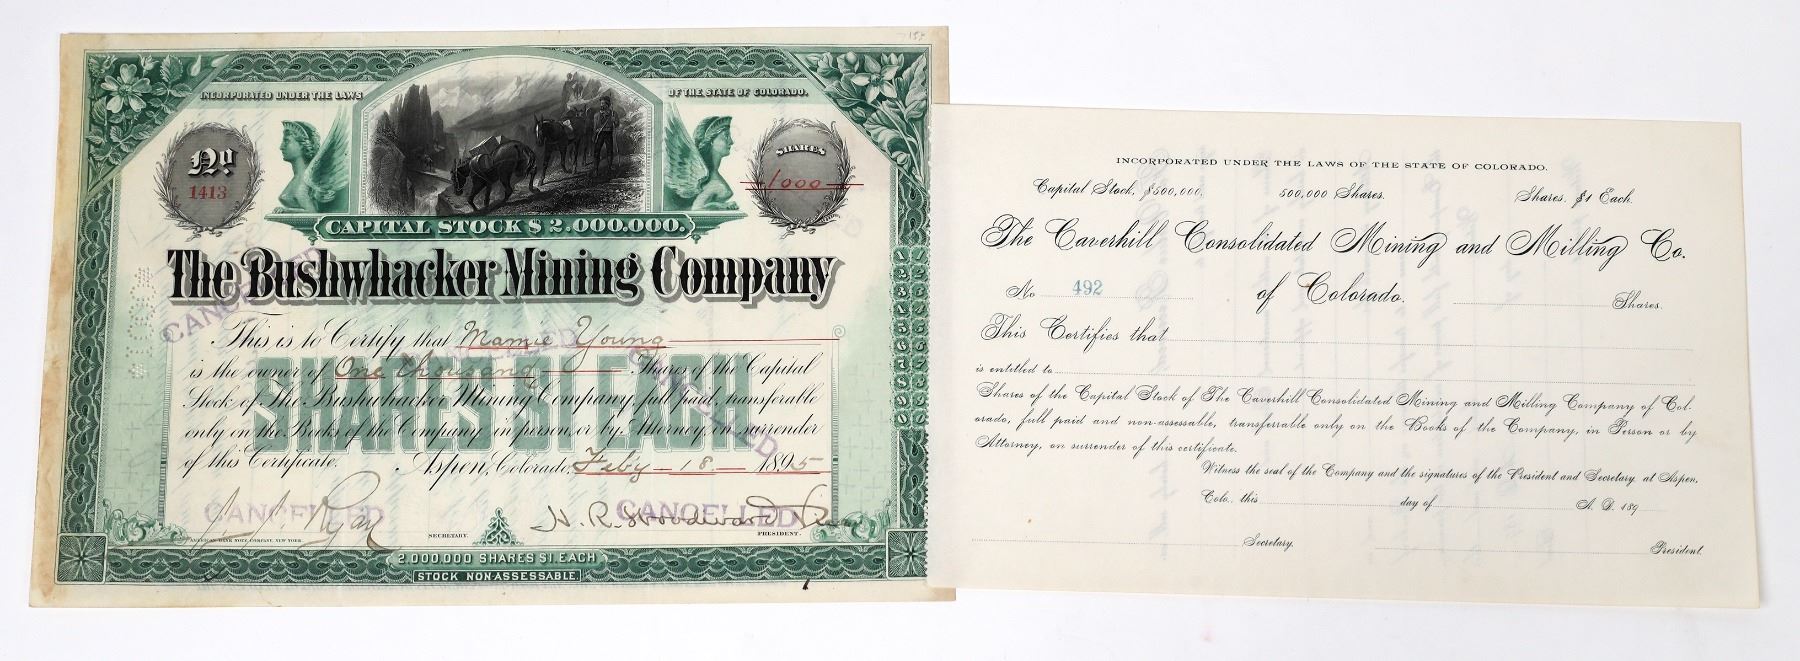 INCORPORATED UNDER THE LAWS
OF THE STATE OF COLORADO.
No
1413
SHARES
1000
CAPITAL STOCK $2.000.000.
The Bushwhacker Mining Company
This is to Certify that Mamie Young
is the owner of One thousand Shares of the Capital
Stock of The Bushwhacker Mining Company, full paid, transferable
only on the Books of the Company in person, or by Attorney, on surrender
of this Certificate. Aspen, Colorado, Feb'y 18 1895
SHARES $1 EACH
CANCELLED
CANCELLED
CANCELLED
CANCELLED
CANCELLED
Ryan
H. R. Woodward
AMERICAN BANK NOTE COMPANY, NEW YORK.
SECRETARY.
PRESIDENT.
2.000.000 SHARES $1. EACH
STOCK NON-ASSESSABLE.
INCORPORATED UNDER THE LAWS OF THE STATE OF COLORADO.
Capital Stock, $500,000. 500,000 Shares. Shares, $1 Each.
The Caverhill Consolidated Mining and Milling Co.
No 492 of Colorado. Shares.
This Certifies that
is entitled to
Shares of the Capital Stock of The Caverhill Consolidated Mining and Milling Company of Col-
orado, full paid and non-assessable, transferrable only on the Books of the Company, in Person or by
Attorney, on surrender of this certificate.
Witness the seal of the Company and the signatures of the President and Secretary, at Aspen,
Colo., this day of A. D. 189
Secretary.
President.